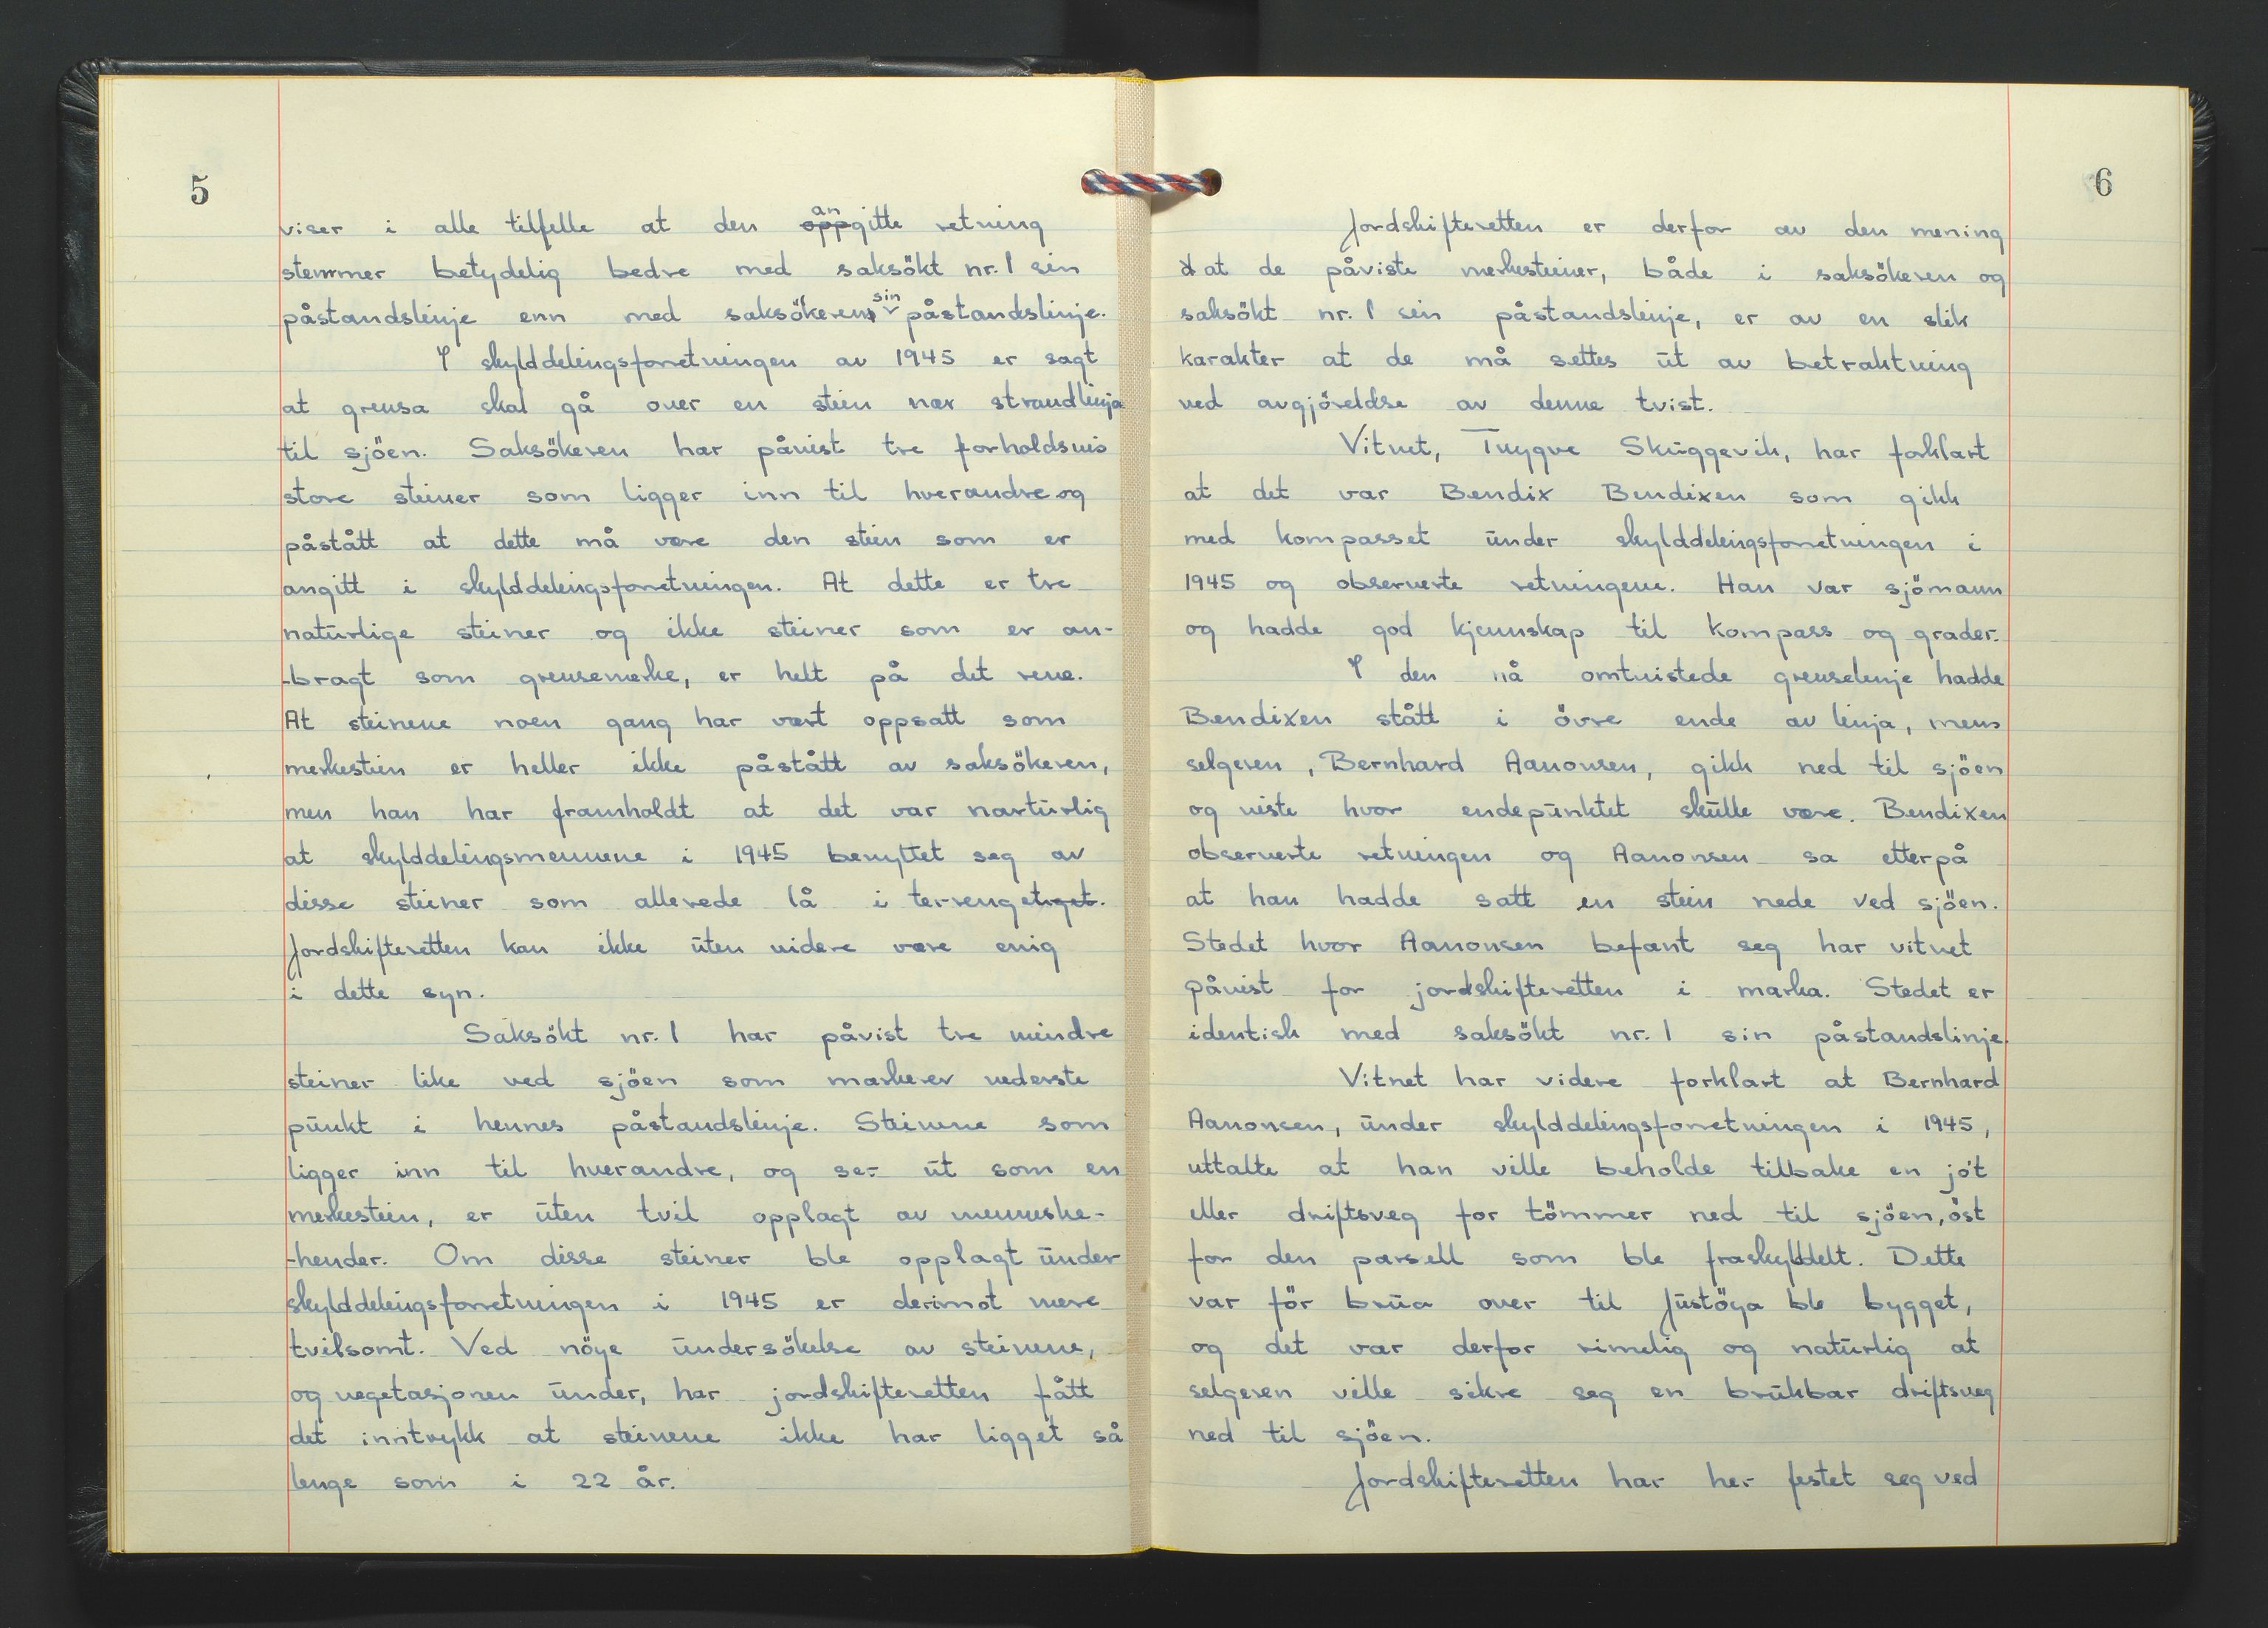 5
viser i alle tilfelle at den angitte retning
stemmer betydelig bedre med saksökt nr. 1 sin
påstandslinje enn med saksökeren sin påstandslinje.
I skylddelingsforretningen av 1945 er sagt
at grensa skal gå over en stein nær strandlinja
til sjöen. Saksökeren har påvist tre forholdsvis
store steiner som ligger inn til hverandre og
påstått at dette må være den stein som er
angitt i skylddelingsforretningen. At dette er tre
naturlige steiner og ikke steiner som er an-
-bragt som grensemerke, er helt på det rene.
At steinene noen gang har vært oppsatt som
merkestein er heller ikke påstått av saksökeren,
men han har framholdt at det var nartürlig
at skylddelingsmennene i 1945 benyttet seg av
disse steiner som allerede lå i terrenget.
Jordskifteretten kan ikke uten videre være enig
i dette syn.
Saksökt nr. 1 har påvist tre mindre
steiner like ved sjöen som markerer nederste
punkt i hennes påstandslinje. Steinene som
ligger inn til hverandre, og ser ut som en
merkestein, er uten tvil opplagt av menneske-
-hender. Om disse steiner ble opplagt under
skylddelingsforretningen i 1945 er derimot mere
tvilsomt. Ved nöye undersökelse av steinene,
og vegetasjonen under, har jordskifteretten fått
det inntrykk at steinene ikke har ligget så
lenge som i 22 år.
6
Jordskifteretten er derfor av den mening
at de påviste merkesteiner, både i saksökeren og
saksökt nr. 1 sin påstandslinje, er av en slik
karakter at de må settes ut av betraktning
ved avgjöreldse av denne tvist.
Vitnet, Trygve Skuggevik, har forklart
at det var Bendix Bendixen som gikk
med kompasset under skylddelingsforretningen i
1945 og observerte retningene. Han var sjömann
og hadde god kjennskap til kompass og grader.
I den nå omtvistede grenselinje hadde
Bendixen stått i övre ende av linja, mens
selgeren, Bernhard Aanonsen, gikk ned til sjöen
og viste hvor endepunktet skulle være. Bendixen
observerte retningen og Aanonsen sa etterpå
at han hadde satt en stein nede ved sjöen.
Stedet hvor Aanonsen befant seg har vitnet
påvist for jordskifteretten i marka. Stedet er
identisk med saksökt nr. 1 sin påstandslinje.
Vitnet har videre forklart at Bernhard
Aanonsen, under skylddelingsforretningen i 1945,
uttalte at han ville beholde tilbake en jo't
eller driftsveg for tömmer ned til sjöen, öst
for den parsell som ble fraskylddelt. Dette
var för brua over til Justöya ble bygget,
og det var derfor rimelig og naturlig at
selgeren ville sikre seg en brukbar driftsveg
ned til sjöen.
Jordskifteretten har her festet seg ved